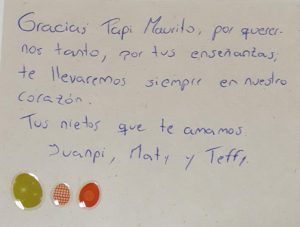 Gracias Papi Maurito, por querer-
nos tanto, por tus enseñanzas,
te llevaremos siempre en nuestro
corazón.
Tus nietos que te amamos
Juanpi, Maty y Teffy